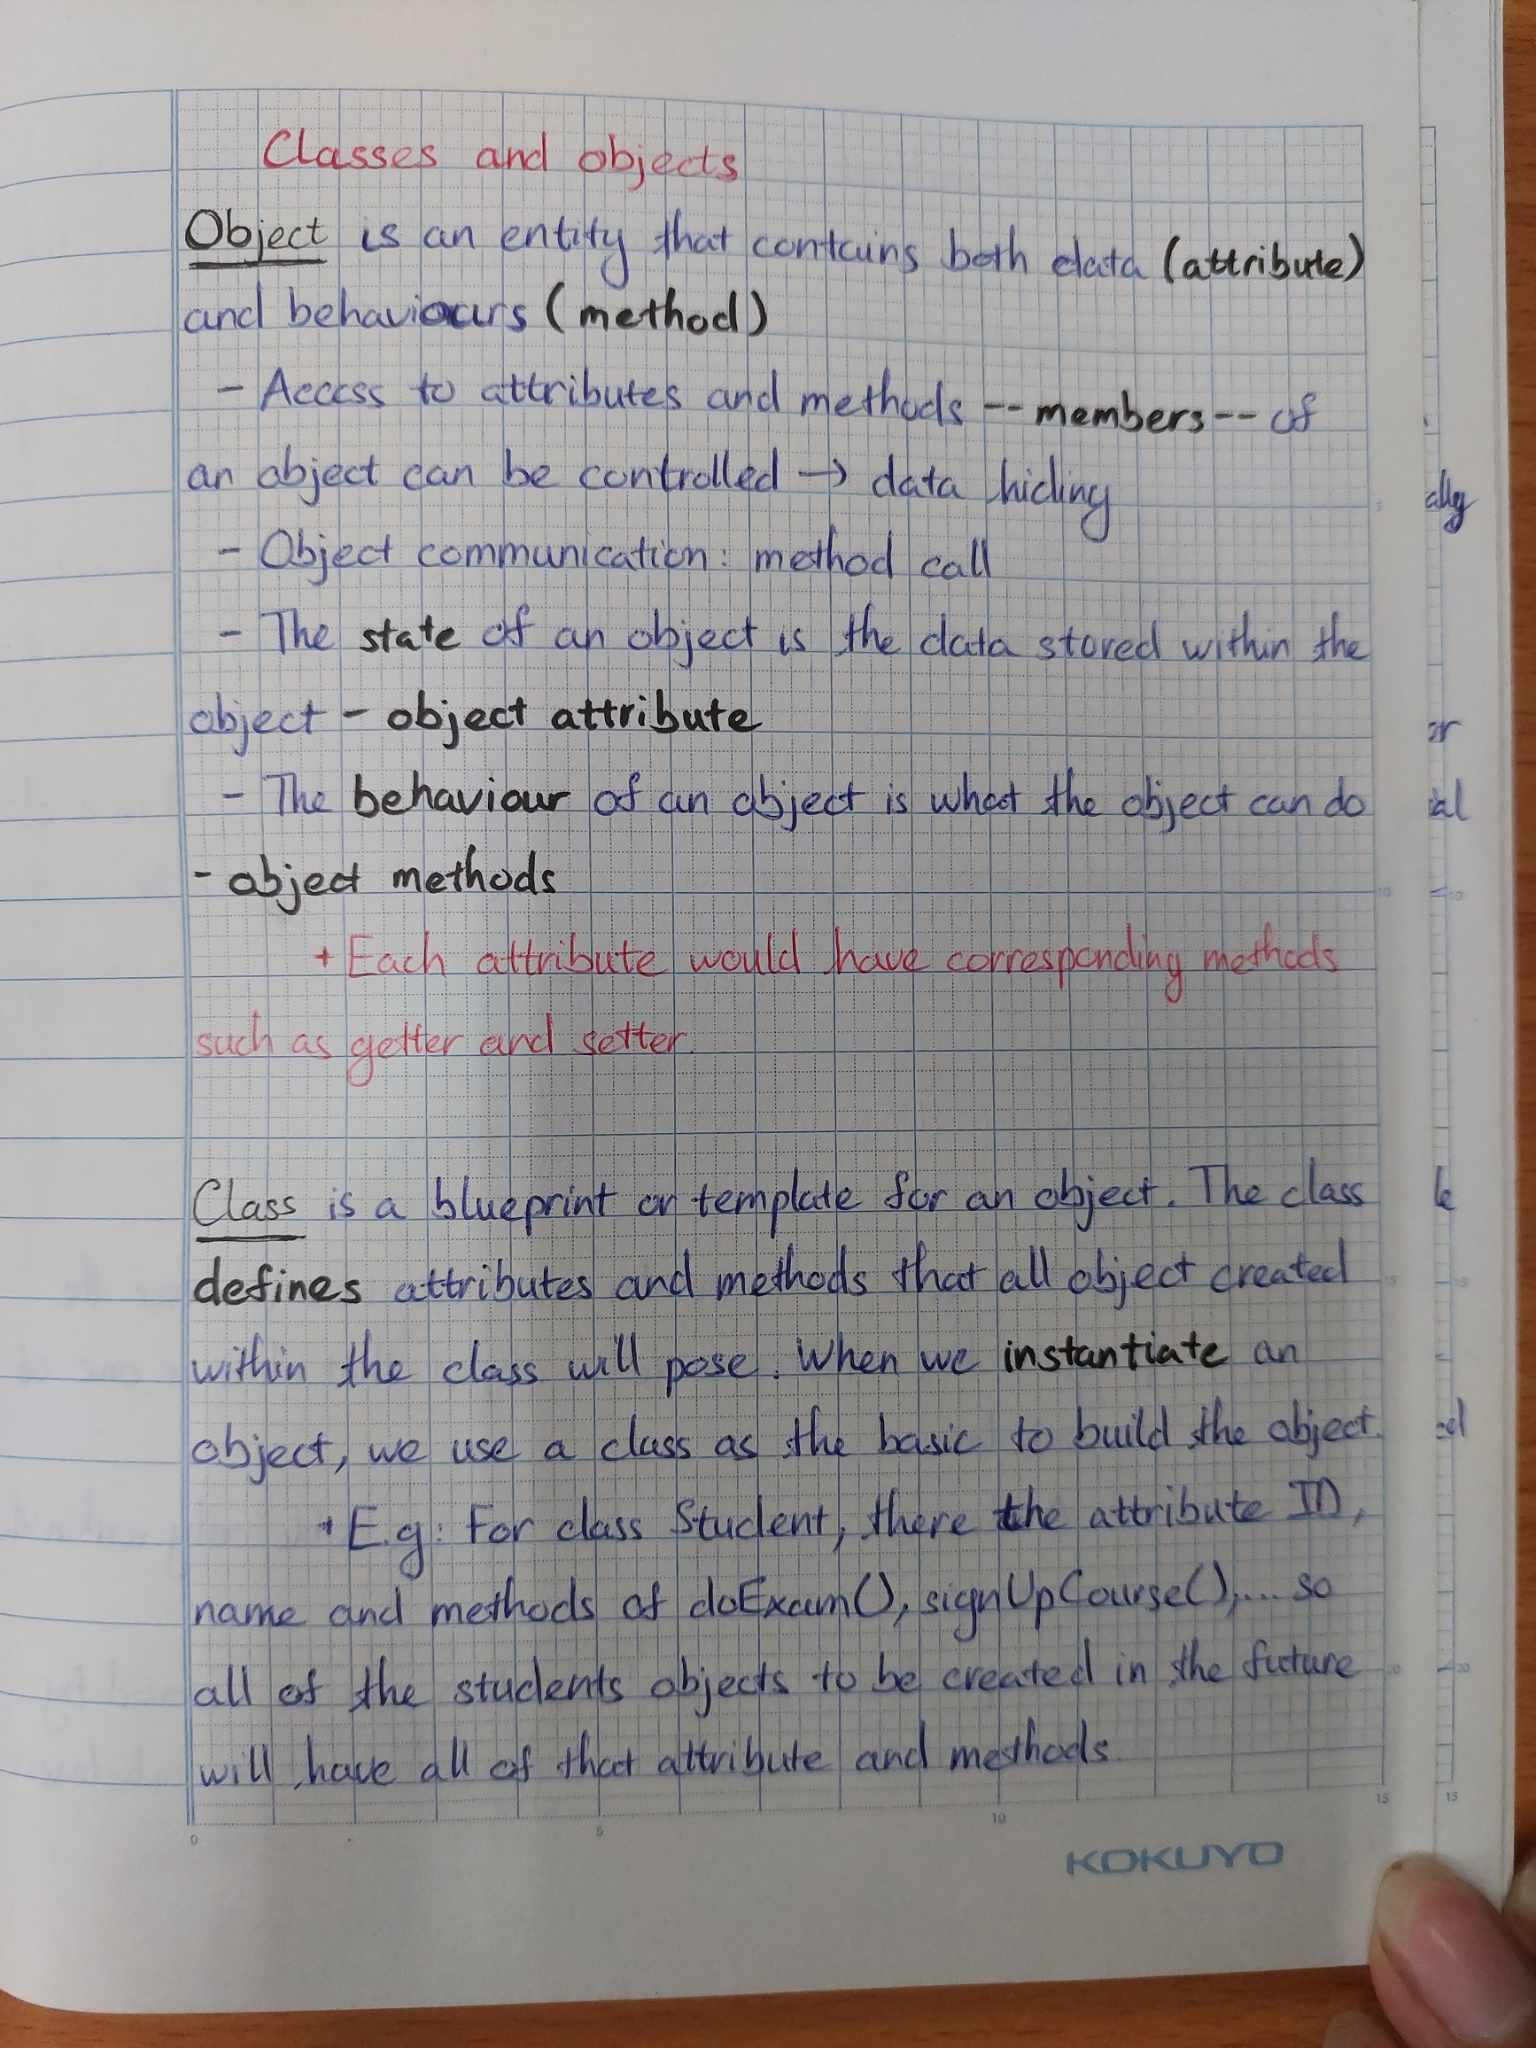 Classes and objects
Object is an entity that contains both data (attribute)
and behaviours (method)
- Access to attributes and methods -- members -- of
an object can be controlled → data hiding
- Object communication: method call
- The state of an object is the data stored within the
object - object attribute
- The behaviour of an object is what the object can do
- object methods
+ Each attribute would have corresponding methods
such as getter and setter.
Class is a blueprint or template for an object. The class
defines attributes and methods that all object created
within the class will pose. When we instantiate an
object, we use a class as the basic to build the object.
+ E.g: For class Student, there the attribute ID,
name and methods of doExam(), signUpCourse(),... so
all of the students objects to be created in the future
will have all of that attribute and methods.
0 5 10 15
KOKUYO